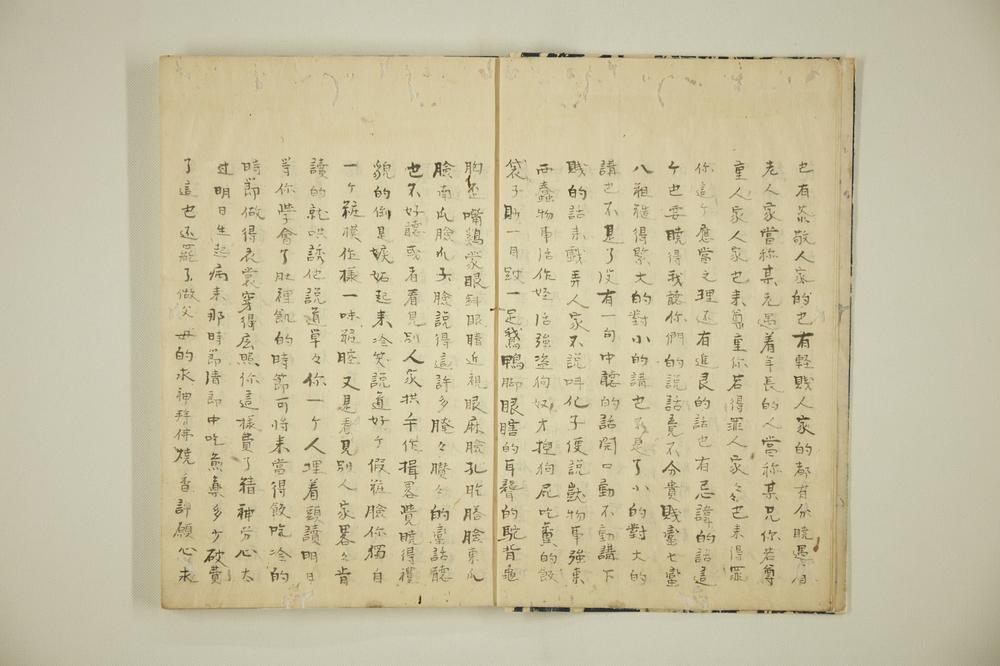 也有恭敬人家的也有輕賤人家的都有分曉遇着
老人家當称某兄遇着年長的人當称某兄你若尊
重人家人家也来尊重你若得罪人家々々也来得罪
你這ケ應當之理还有進良的話也有忌諱的話這
ケ也要曉得我聽你們的說話竟不分貴賤蛮七蛮
八祖禮得緊大的對小的講也不是了小的對大的
講也不是了没有一句中聽的話開口動不動講下
賎的話来戯弄人家不說叫化子便說獃物事強東
西蠢物事活作怪活強盗狗奴才狸狗屁吃糞的殺
袋子助一月跛一足鵞鴨脚眼瞎的耳聾的駝背龜
胸歪嘴鷄蒙眼斜眼瞎近視眼麻臉孔吃膳臉東瓜
臉南瓜臉瓜子臉說得這許多腌々臢々的蛮話聽
也不好聽或者看見別人家拱手作揖畧覺曉得禮
貌的倒是嫉妬起来冷笑說道好ケ假粧臉你獨自
一ケ粧模作樣一味粧腔又是看見別人家畧々肯
讀的就哄誘他說道草々你一ケ人埋着頭讀明日
等你學會了肚裡飢的時節可将来當得飯吃冷的
時節做得衣裳穿得么照你這樣費了精神分心太
过明日生起病来那時節清節中吃煎藥多少破費
了這也还罷了做父母的求神拜佛燒香許願心未